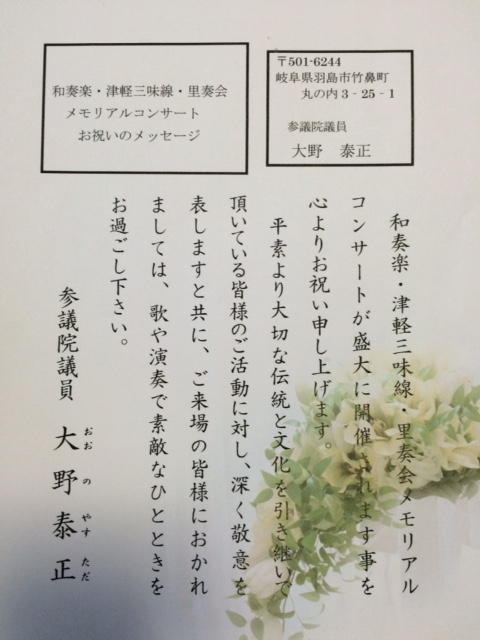 和奏楽・津軽三味線・里奏会
メモリアルコンサート
お祝いのメッセージ
〒501-6244
岐阜県羽島市竹鼻町
丸の内3-25-1
参議院議員
大野 泰正
和奏楽・津軽三味線・里奏会メモリアル
コンサートが盛大に開催されます事を
心よりお祝い申し上げます。
平素より大切な伝統と文化を引き継いで
頂いている皆様のご活動に対し、深く敬意を
表しますと共に、ご来場の皆様におかれ
ましては、歌や演奏で素敵なひとときを
お過ごし下さい。
参議院議員 大野泰正
おおのやすただ